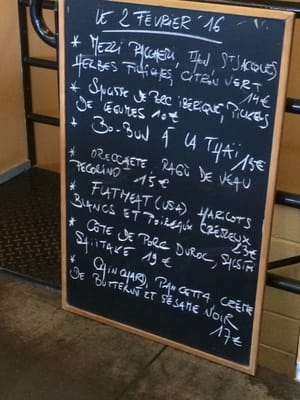 LE 2 FÉVRIER '16
* MEZZI PACCHERI, THON, ST JACQUES,
HERBES FRAÎCHES, CITRON VERT
14€
* SAUCISSE DE PORC IBÉRIQUE, PICKLES
DE LÉGUMES 10€
* BO-BUN À LA THAÏ
13€
* ORECCHIETE RAGÙ DE VEAU
PECORINO 15€
* FLATMEAT (USA) HARICOTS
BLANCS ET POIREAUX CRÉMEUX
23€
* CÔTE DE PORC DUROC, SALSIFIS
SHIITAKE 19€
* CHINCHARD, PANCETTA, CRÈME
DE BUTTERNUT ET SÉSAME NOIR
17€